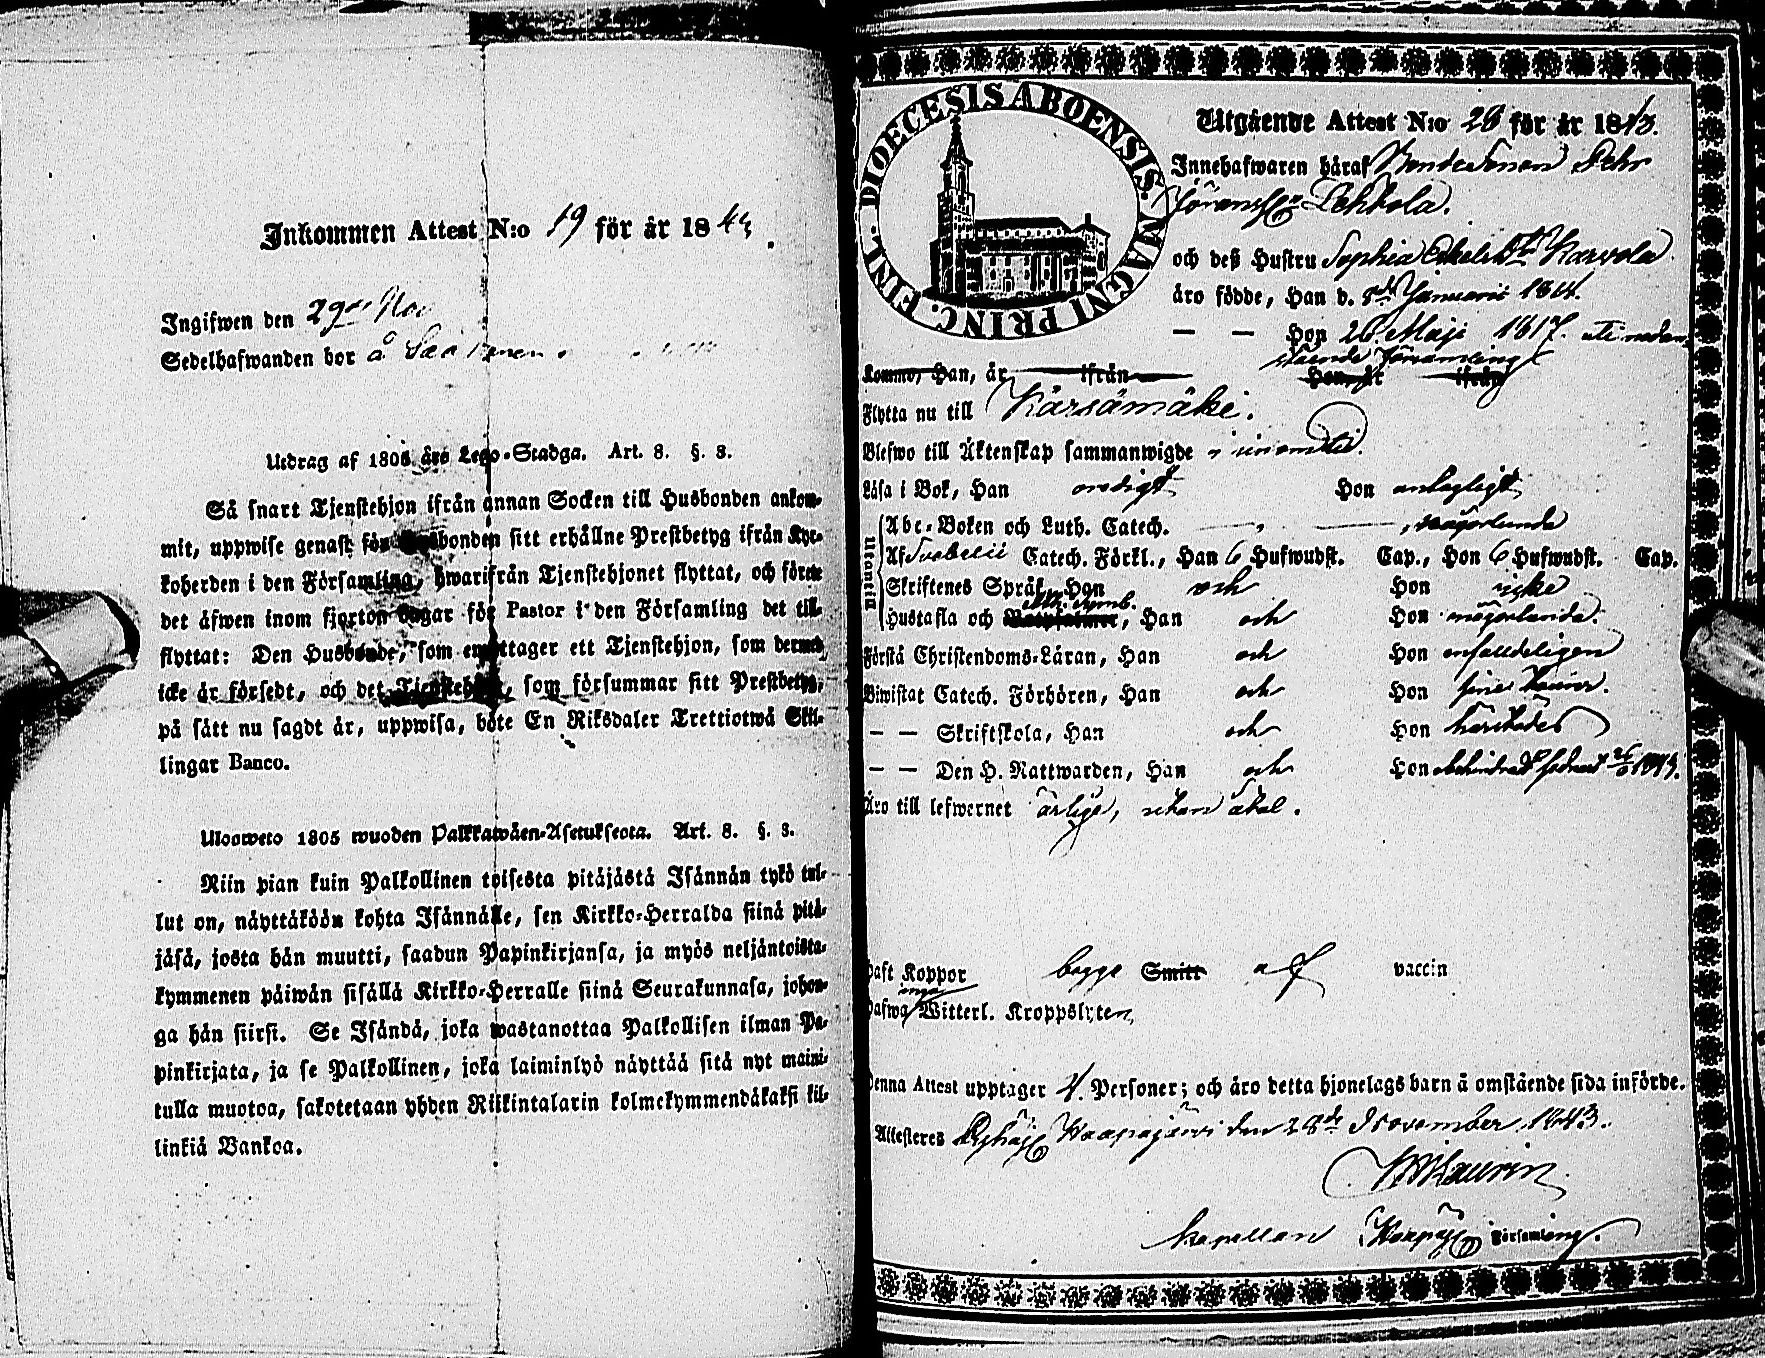 Inkommen Attest N:o 19 för år 1843.
Ingifwen den 29de Nov
Sedelhafwanden bor å
Utdrag af 1805 års Lego-Stadga. Art. 8. §. 8.
Så snart Tjenstehjon ifrån annan Socken till Husbonden ankom-
mit, uppwise genast för Husbonden sitt erhållne Prestbetyg ifrån Kyr-
koherden i den Församling, hwarifrån Tjenstehjonet flyttat, och förete
det äfwen inom fjorton dagar för Pastor i den Församling det till-
flyttat: Den Husbonde, som emottager ett Tjenstehjon, som dermed
icke är försedt, och det Tjenstehjon, som försummar sitt Prestbetyg,
på sätt nu sagdt är, uppwisa, böte En Riksdaler Trettiotwå Skil-
lingar Banco.
Ulosweto 1805 wuoden Palkkawäen-Asetuksesta. Art. 8. §. 8.
Niin pian kuin Palkollinen toisesta pitäjästä Isännän tykö tul-
lut on, näyttäköön kohta Isännälle, sen Kirkko-Herralda siinä pitä-
jäsä, josta hän muutti, saadun Papinkirjansa, ja myös neljäntoista-
kymmenen päiwän sisällä Kirkko-Herralle siinä Seurakunnasa, johon-
ga hän siirsi. Se Isändä, joka wastanottaa Palkollisen ilman Pa-
pinkirjata, ja se Palkollinen, joka laiminlyö näyttää sitä nyt maini-
tulla muotoa, sakotetaan yhden Riikintalarin kolmekymmendäkaksi kil-
linkiä Bankoa.
DIOECESIS ABOENSIS. MAGNI PRINC. FINL.
Utgående Attest N:o 28 för år 1843.
Innehafwaren häraf Bondesonen Pehr
Göransson Lehtola.
och deß Hustru Sophia Karvola
äro födde, Han d. 8de Januarii 1814.
— — Hon 28 Maji 1817. uti nedan
stående församling
Kommo, Han, år ifrån Hon, år ifrån
Flytta nu till Kärsämäki.
Blefwo till Äktenskap sammanwigde
Läsa i Bok, Han ordigt Hon antagligt
Utantill
Abc-Boken och Luth. Catech. — , — , någorlunda
Af Svebelii Catech. Förkl., Han 6 Hufwudst. Cap., Hon 6 Hufwudst. Cap.
Skriftenes Språk, Han och Hon icke
Hustafla och Ath. Symb., Han och Hon någorlunda.
Förstå Christendoms-Läran, Han och Hon enfalldeligen
Biwistat Catech. Förhören, Han och Hon sine
— — Skriftskola, Han och Hon
— — Den H. Nattwarden, Han och Hon obehindradt sednast 1843.
Äro till lefwernet ärlige, utan åtal.
Haft Koppor begge Smitt af vaccin
Hafwa inga Witterl. Kroppslyten,
Denna Attest upptager 4. Personer; och äro detta hjonelags barn å omstående sida införde.
Attesteres Pyhäj. Haapajärvi den 28de November 1843.
Kapellan Haapaj. Församling.